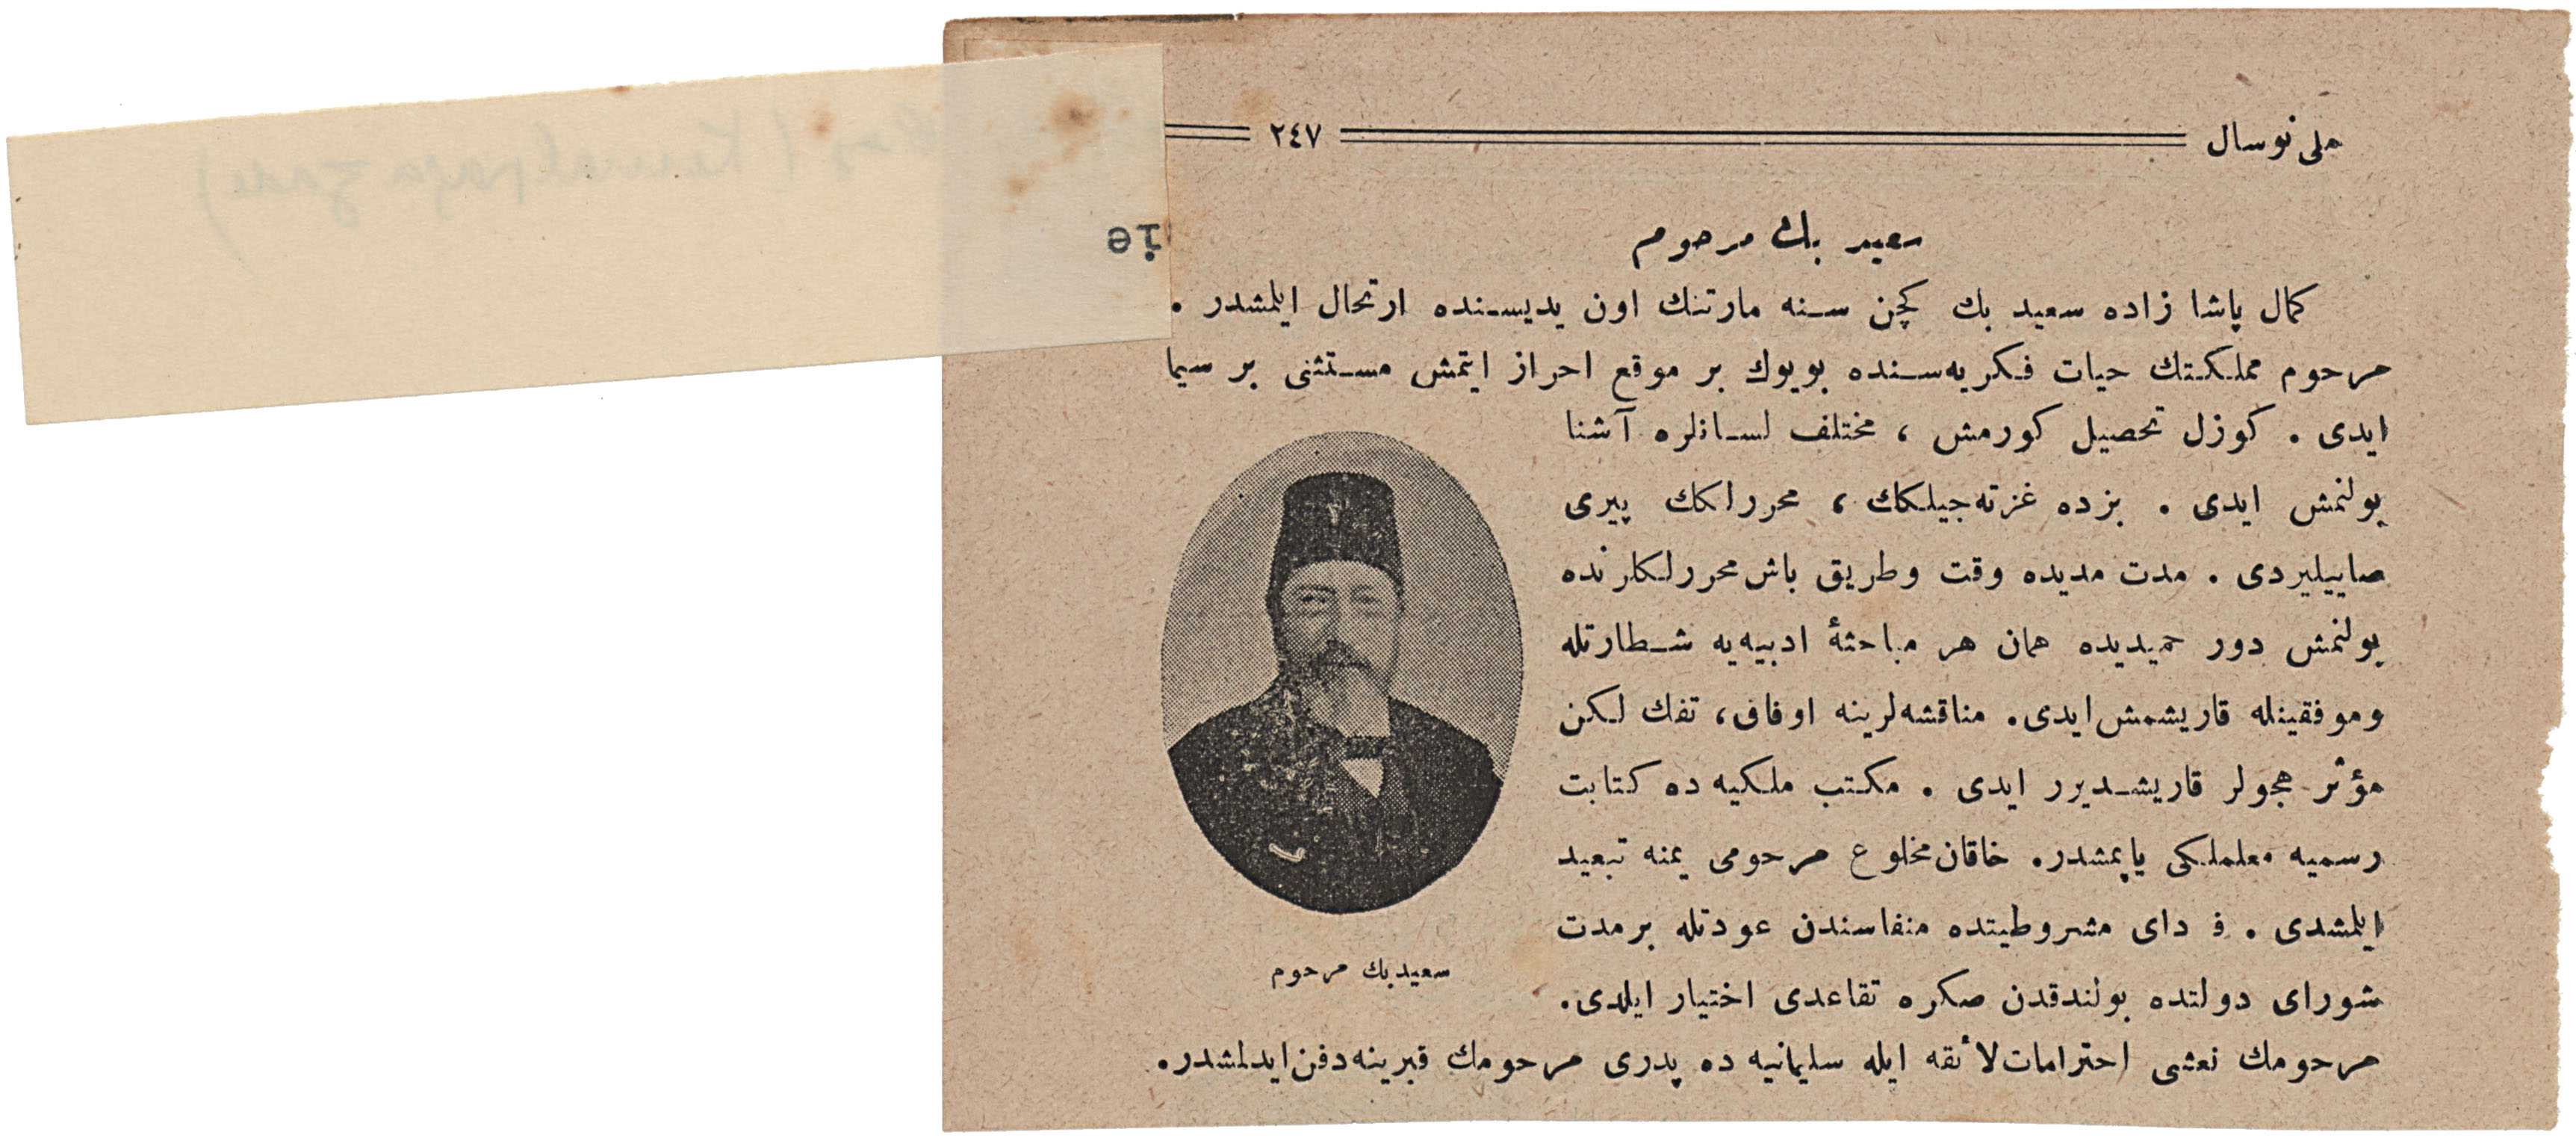 ملی نوسال ٢٤٧
سعید بك مرحوم
كمال پاشا زاده سعید بك كچن سنه مارتنك اون یدیسنده ارتحال ایلمشدر .
مرحوم مملكتك حیات فكریه‌سنده بویوك بر موقع احراز ایتمش مستثنی بر سیما
ایدی . كوزل تحصیل كورمش ، مختلف لسانلره آشنا
بولنمش ایدی . بزده غزته‌جیلكك ، محررلكك پیری
صاییلیردی . مدت مدیده وقت وطریق باش محررلكلرنده
بولنمش دور حمیدیده همان هر مباحثهٔ ادبیه‌یه شطارتله
وموفقیتله قاریشمش ایدی . مناقشه‌لرینه اوفاق ، تفك لكن
مؤثر هجولر قاریشدیرر ایدی . مكتب ملكیه ده كتابت
رسمیه معلملكی یاپمشدر . خاقان مخلوع مرحومی یمنه تبعید
ایلمشدی . ف دای مشروطیتده منفاسندن عودتله بر مدت
شورای دولتده بولندقدن صكره تقاعدی اختیار ایلدی .
مرحومك نعشی احترامات لائقه ایله سلیمانیه ده پدری مرحومك قبرینه دفن ایدلمشدر .
سعید بك مرحوم
ie